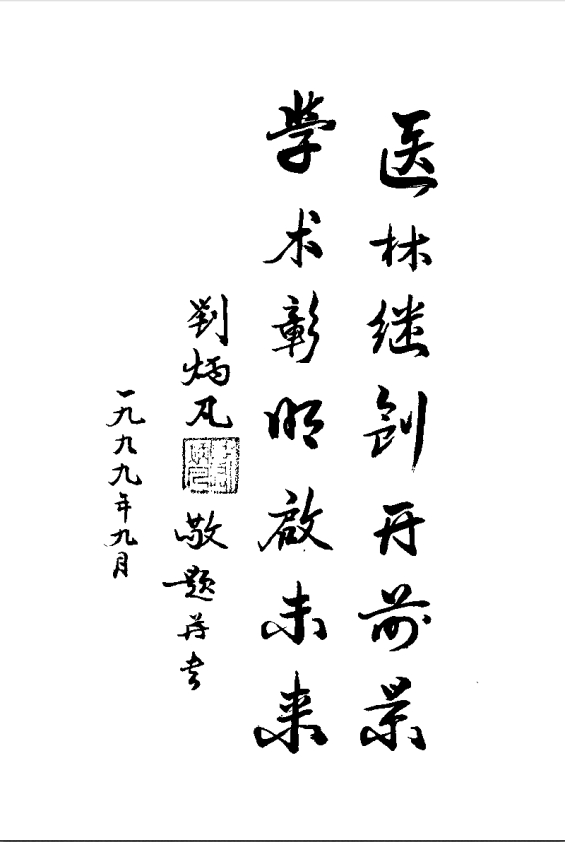 医林继创再前景
学术彰明启未来
刘炳凡
敬题并书
一九九九年九月